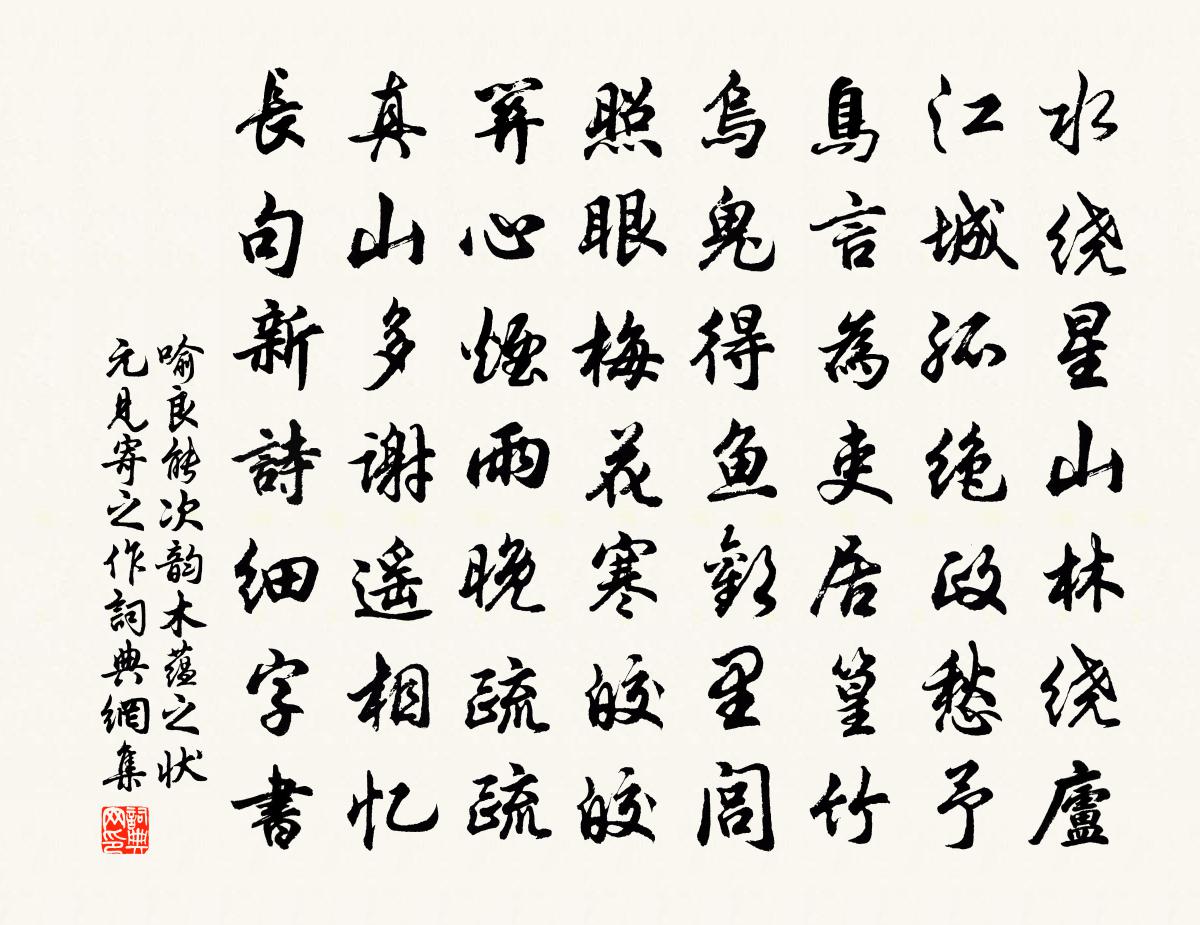 水绕星山林绕廬
江城孤绝政愁予
鳥言為吏居篁竹
烏鬼得鱼歡里閭
照眼梅花寒皎皎
關心煙雨晚疏疏
真山多谢遥相忆
長句新詩细字書
喻良能次韵木蕴之状
元見寄之作詞典網集
詞典網印